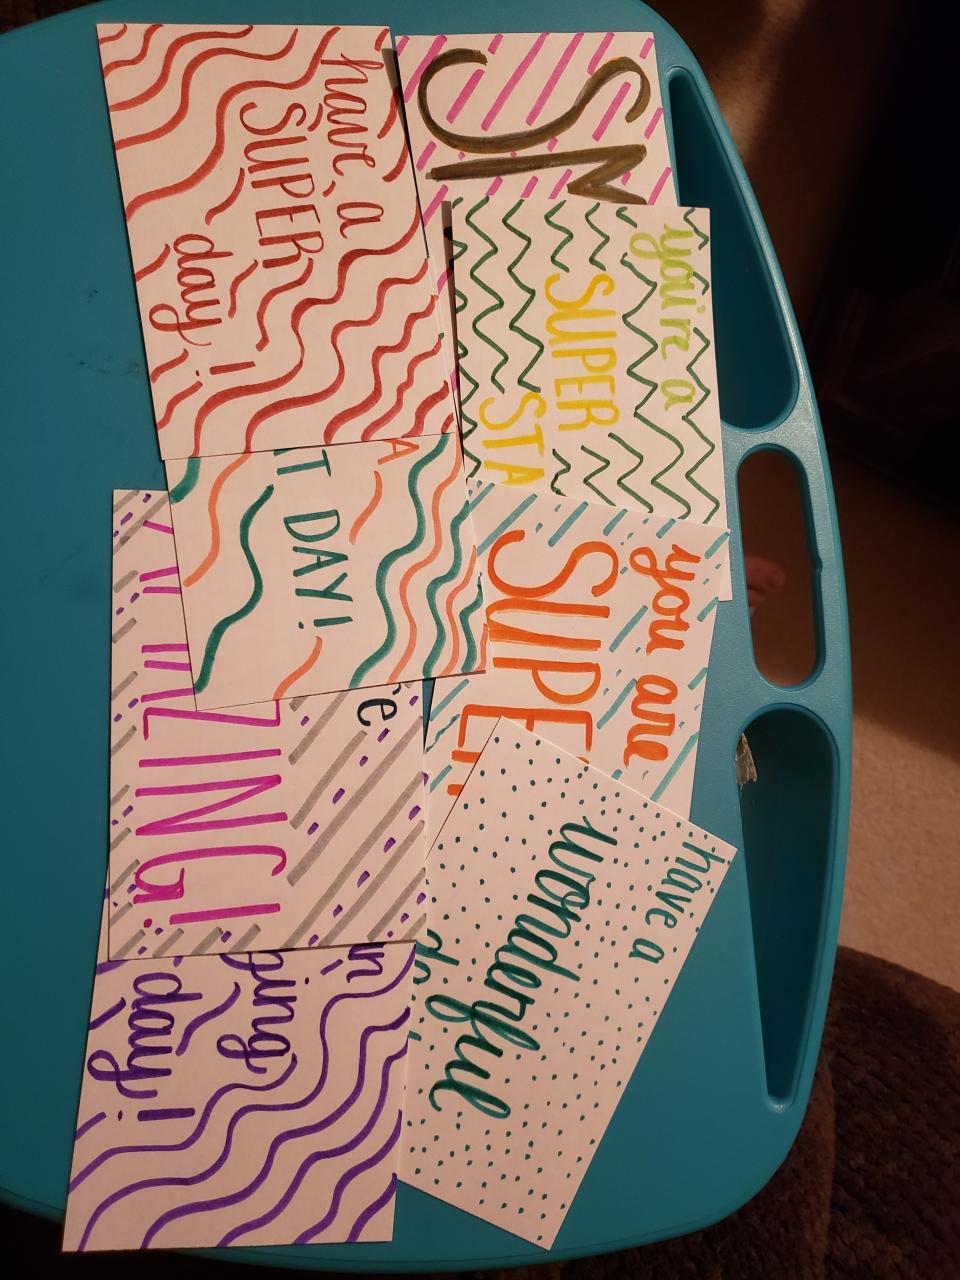 have a
SUPER
day!
SM
you're a
SUPER
STA
A
T DAY!
you are
SUPE
re
ZING!
have a
wonderful
da
an
ping
day!